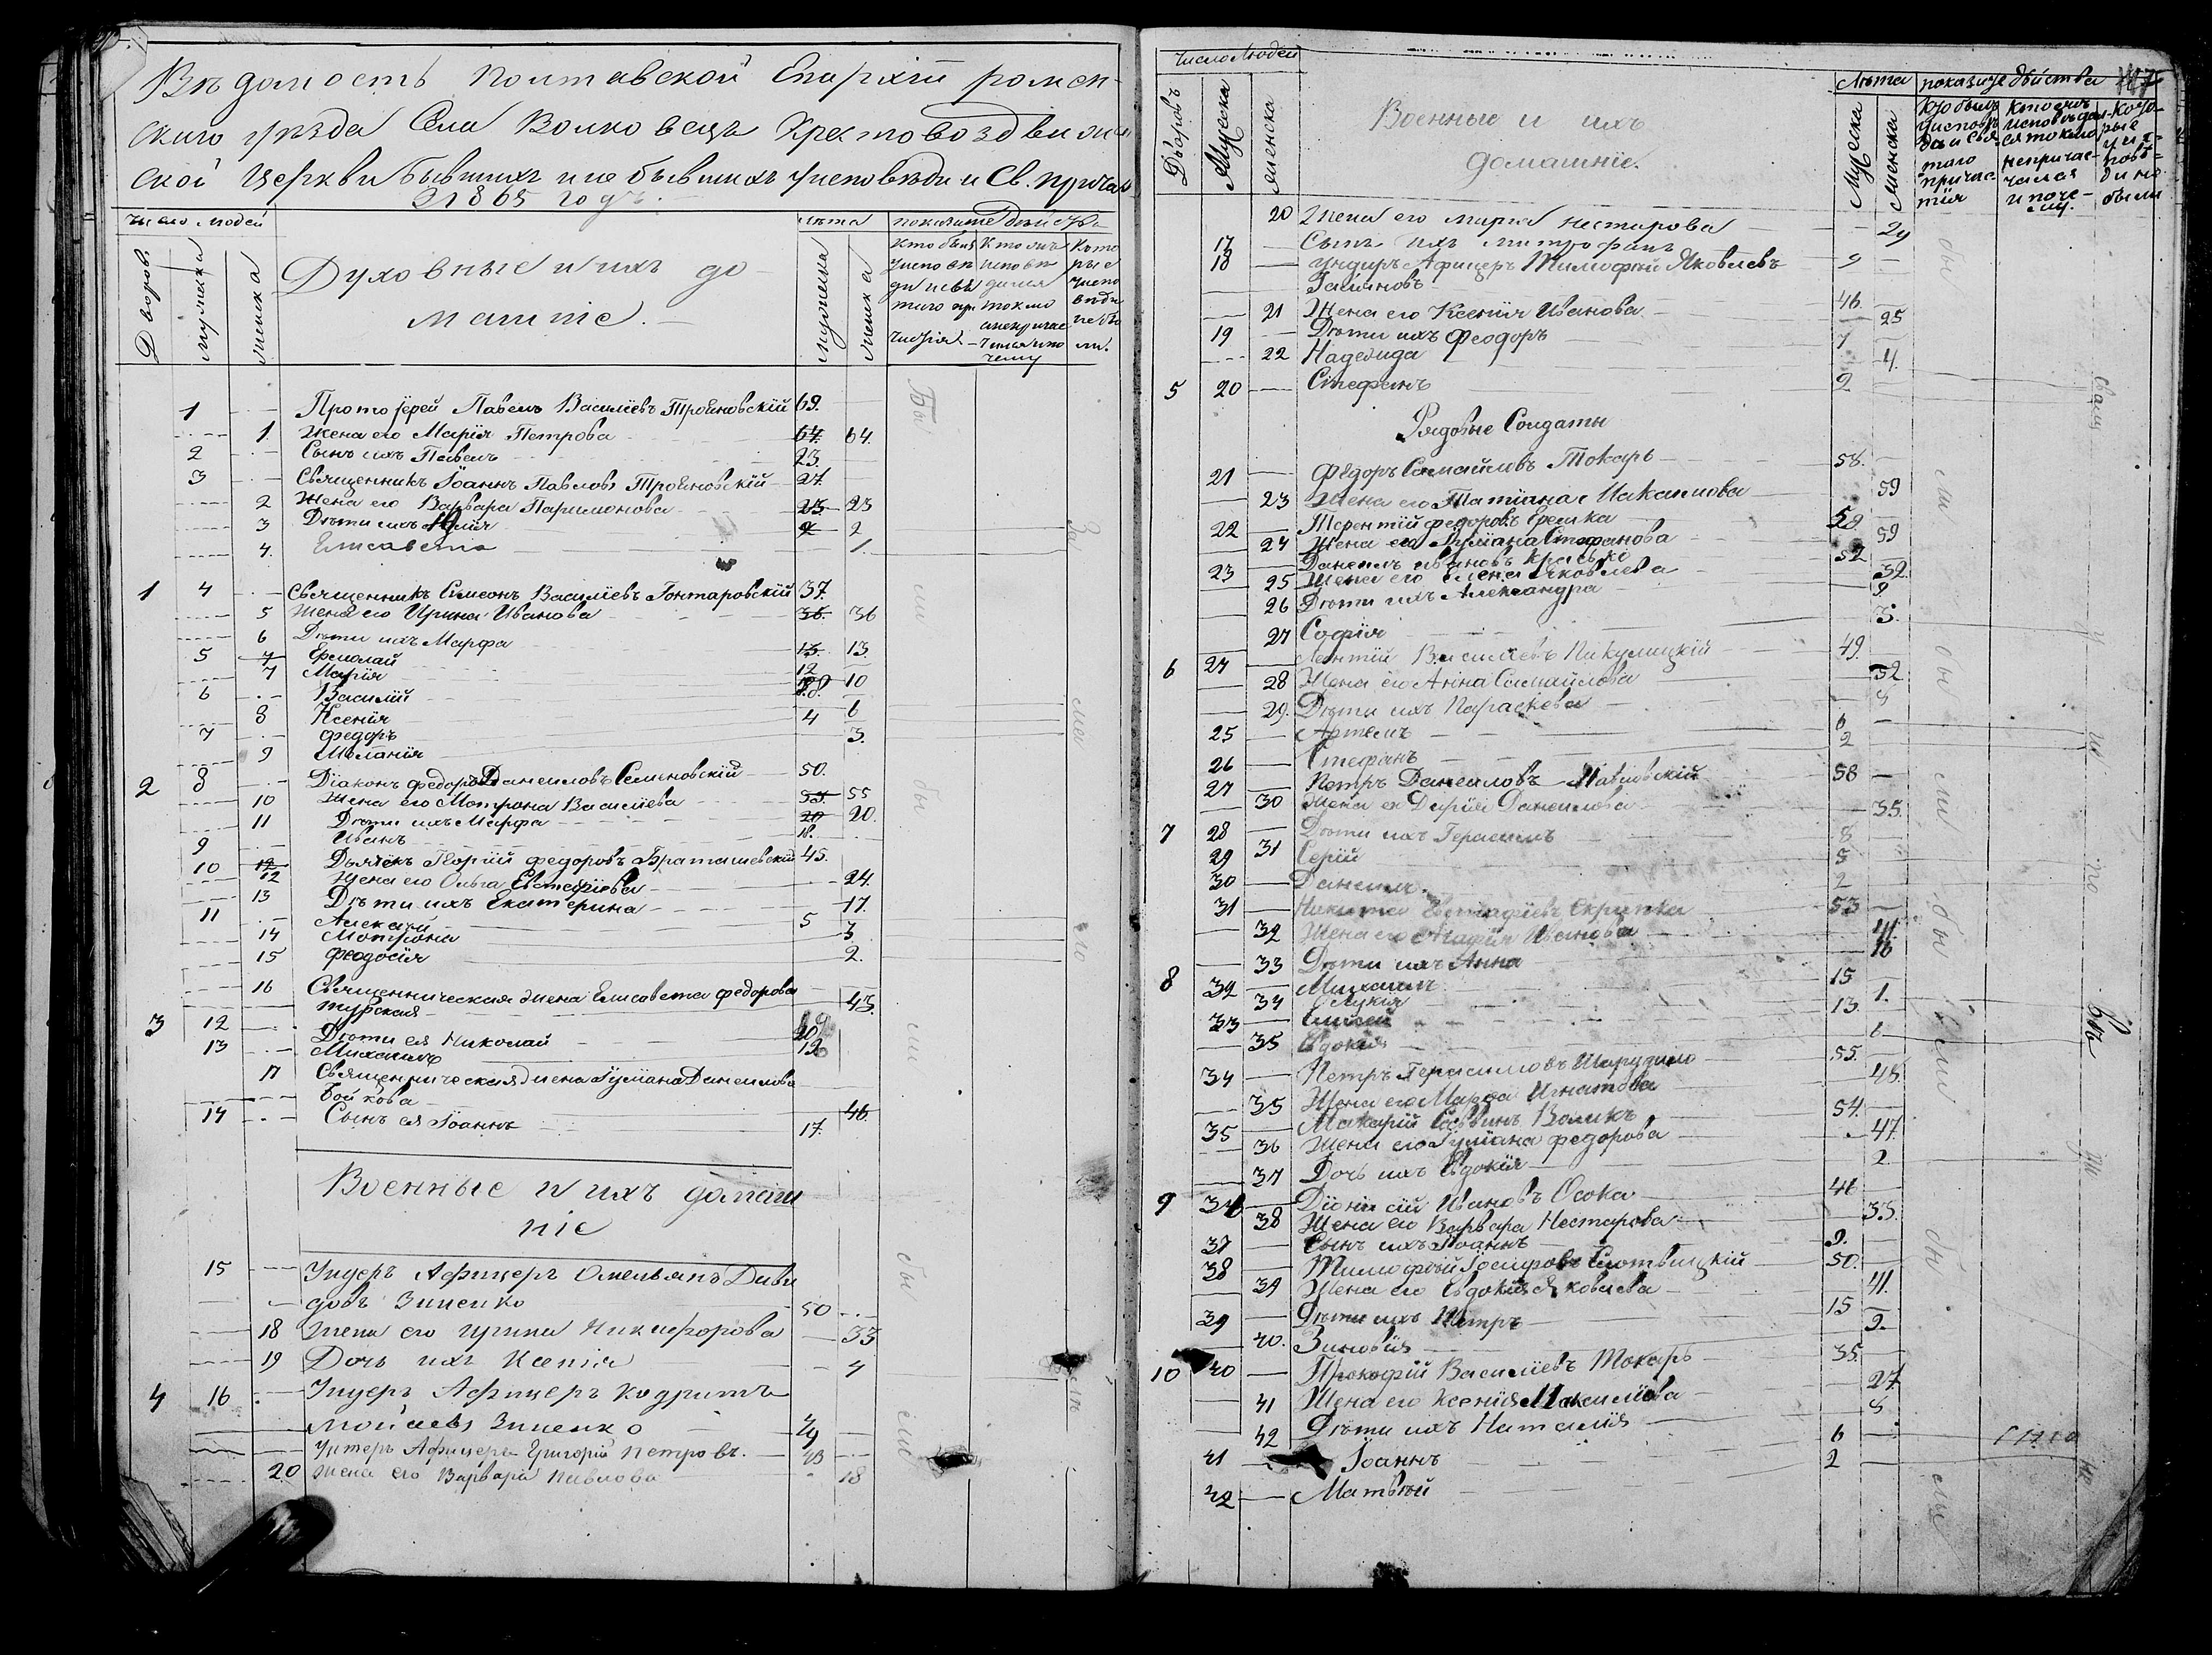 Вѣдомость Полтавской Епархіи ромен-
скаго уѣзда Села Волковецъ Крестовоздвижен
ской Церкви бывшихъ и не бывшихъ уисповѣди и Св. причас
1865 годъ.
число людей
лѣта
Дворов.
мужеска
женска
Духовные и ихъ до
машніе.
мужеска
женска
1 Протоіерей Павелъ Василіевъ Трояновскій 69.
1. Жена его Марія Петрова 64. 64.
2 Сынъ ихъ Павелъ 23.
3 Священникъ Іоаннъ Павловъ Трояновскій 27
2 Жена его Варвара Паримонова 23 23
3 Дѣти ихъ Юлія 2 2
4. Елисавета 1.
1 4 Священникъ Симеонъ Василіевъ Гонтаровскій 37.
5 Жена его Ирина Иванова 36. 36
6 Дѣти ихъ Марфа 13. 13.
5 7 Ермолай 12
7 Марія 10 10
6 Василій
8 Ксенія 4 6
7 Федоръ 3.
9 Меланія
2 8 Діаконъ Федоръ Данеиловъ Семеновскій 50.
10 Жена его Мотрона Василіева 55. 55
11 Дѣти ихъ Марфа 20 20.
9 Иванъ 18.
10 12 Дьячекъ Георгій Федоровъ Браташевскій 45.
12 Жена его Ольга Евстафіева 24.
13 Дѣти ихъ Екатерина 17.
11 Алексѣй 5
14 Мотрона 3
15 Феодосія 2.
16 Священническая жена Елисавета Федорова
Турская 43.
3 12 Дѣти ея Николай 20
13 Михаилъ 13
17 Священническая жена Іуліана Данеилова
Бойкова 46.
14 Сынъ ея Іоаннъ 17.
Военные и ихъ домаш
ніе
15 Ундеръ Афицеръ Омельянъ Дави
довъ Зиненко 50
18 Жена его Ирина Никифорова 33
19 Дочь ихъ Ксенія 7
4 16 Ундеръ Афицеръ Кодратъ
Мойсеевъ Зиненко 29
Унтеръ Афицеръ Григорій Петровъ.
20 Жена его Варвара Павлова 18
Число Людей
Дворовъ
Мужеска
женска
Военные и ихъ
домашніе.
Лѣта
показаніе дѣйства
147
Мужеска
женска
20 Жена его Марія Нестарова 29
17 Сынъ ихъ Митрофанъ 9
18 Ундеръ Афицеръ Тимофей Яковлевъ
46.
21 Жена его Ксенія Иванова 25
19 Дѣти ихъ Феодоръ 7
22 Надежда 4.
5 20 Стефанъ 2
Рядовые Солдаты
21 Федоръ Самайловъ Токарь 58.
23 Жена его Татіана Макаимова 59
22 Терентій Федоровъ
24 Жена его Іуліана Стефанова 59
23 Данеилъ Ивановъ 52
25 Жена его Елена Яковлева 32.
26 Дѣти ихъ Александра 9
27 Софія 3.
6 24 Леонтій Василіевъ Никулицкій 49.
28 Жена его Анна Самайлова 32
29. Дѣти ихъ Параскева 8
25 Артемъ 6
26 Стефанъ 2
27 Петръ Данеиловъ Павловскій 58
30 Жена его Дарія Данеилова 35.
7 28 Дѣти ихъ Герасимъ 8
29 31 Сергій 5
30 Данеилъ. 2
31 Никита Евстафіевъ Скрипка 53
32 Жена его Агафія Иванова 41.
33 Дѣти ихъ Анна 16
8 32 Михаилъ 15
34 Лукія 1.
33 Елисей 13.
35 Евдокія 6
34 Петръ Герасимовъ Шарудило 55.
35 Жена его Марфа Игнатова 48.
35 Макарій Саввинъ Воликъ 54.
36 Жена его Іуліана Федорова 47.
37 Дочь ихъ Евдокія 2.
9 36 Діонисій Ивановъ Осока 46
38 Жена его Варвара Нестарова 33.
37 Сынъ ихъ Іоаннъ 9.
38 Тимофѣй Іосифовъ 50.
39 Жена его Евдокія Яковлева 41.
39 Дѣти ихъ Петръ 15
40. Зиновія 9.
10 40 Прокофій Василіевъ Токарь 35.
41 Жена его Ксенія Максимова 27
42 Дѣти ихъ Наталія 8
41 Іоаннъ 6
42 Матвѣй 2